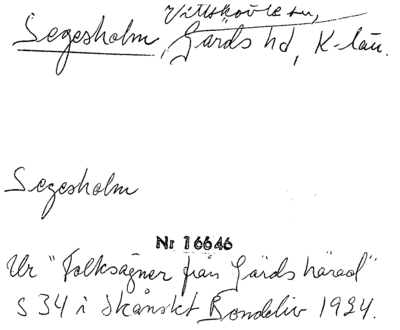 Vittskövle sn,
Segesholm, Gärds hd, K-län.
Segesholm
Nr 16646
Ur "Folksägner från Gärds härad"
S 34 i Skånskt Bondeliv 1924.